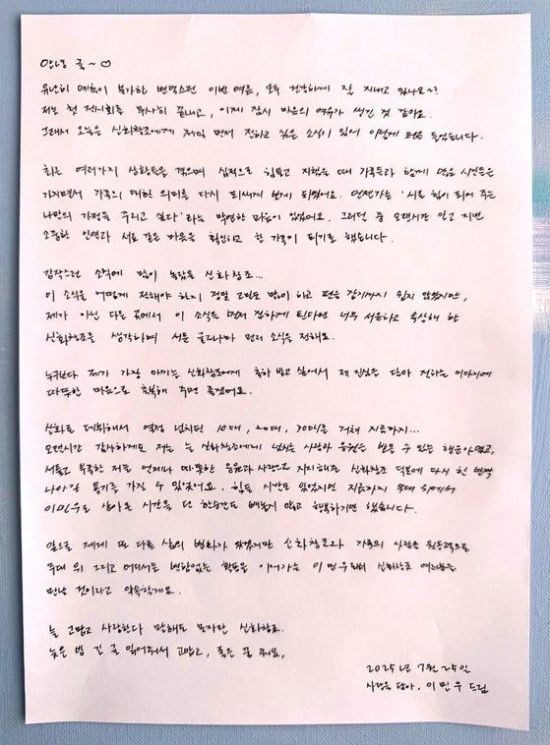 안녕 귤~♡
유난히 예측이 불가한 변덕스런 이번 여름, 모두 건강하게 잘 지내고 있나요~?
저는 첫 전시회를 무사히 끝내고, 이제 잠시 마음의 여유가 생긴 것 같아요.
그래서 오늘은 신화창조에게 제일 먼저 전하고 싶은 소식이 있어 이렇게 펜을 들었습니다.
최근 여러가지 상황들을 겪으며 심적으로 힘들고 지쳤을 때 가족들과 함께 많은 시간들을
가지면서 가족의 대한 의미를 다시 되새기게 되었어요. 언젠가는 '서로 힘이 되어 주는
나만의 가정을 꾸리고 싶다'라는 막연한 마음이 있었어요. 그러던 중 오랜시간 알고 지낸
소중한 인연과 서로 같은 마음을 확인하고 한 가족이 되기로 했습니다.
갑작스런 소식에 많이 놀랐을 신화창조...
이 소식을 어떻게 전해야 할지 정말 고민도 많이 하고 펜을 잡기까지 쉽지 않았지만,
제가 아닌 다른 곳에서 이 소식을 먼저 접하게 된다면 너무 서운하고 속상해 할
신화창조를 생각하며 서툰 글이나마 먼저 소식을 전해요.
누구보다 제가 가장 아끼는 신화창조에게 축하 받고 싶어서 제 진심을 담아 전하는 이야기에
따뜻한 마음으로 축복해 주면 좋겠어요.
신화로 데뷔해서 열정 넘치던 10대, 20대, 30대를 거쳐 지금까지...
오랜시간 감사하게도 저는 늘 신화창조에게 넘치는 사랑과 응원을 받을 수 있는 행운아였고,
서툴고 부족한 저를 언제나 따뜻한 응원과 사랑으로 지지해주는 신화창조 덕분에 다시 한 발짝
나아갈 용기를 가질 수 있었어요. 힘든 시간도 있었지만 지금까지 무대 위에서
이민우로 살아온 시간을 단 한순간도 빼놓지 않고 행복하기만 했습니다.
앞으로 제게 또 다른 삶의 변화가 있겠지만 신화창조와 가족의 사랑을 원동력으로
무대 위 그리고 어디서든 변함없는 활동을 이어가는 이민우로 신화창조 여러분을
만날 것이라고 약속할게요.
늘 고맙고 사랑한다 말해도 모자란 신화창조.
늦은 밤 긴 글 읽어줘서 고맙고, 좋은 꿈 꿔요,
2025년 7월 25일
사랑을 담아, 이민우 드림